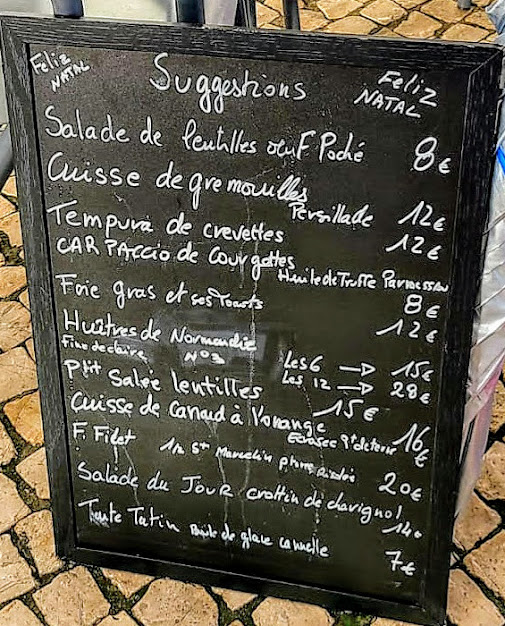 Feliz NATAL
Suggestions
Feliz NATAL
Salade de lentilles oeuf Poché 8€
Cuisse de gremouilles
Persillade 12€
Tempura de crevettes 12€
CARPACCIO de Courgettes
Huile de Truffe Parmessan 8€
Foie gras et ses Toasts 12€
Huîtres de Normandie Les 6 → 15€
Fine de claire N°3 Les 12 → 28€
Ptit Salée lentilles 15€
Cuisse de Canard à l'orange 16€
Ecrasée
F. Filet 20€
Salade du Jour crottin de chavignol 14€
Tarte Tatin Boule de glace cannelle 7€